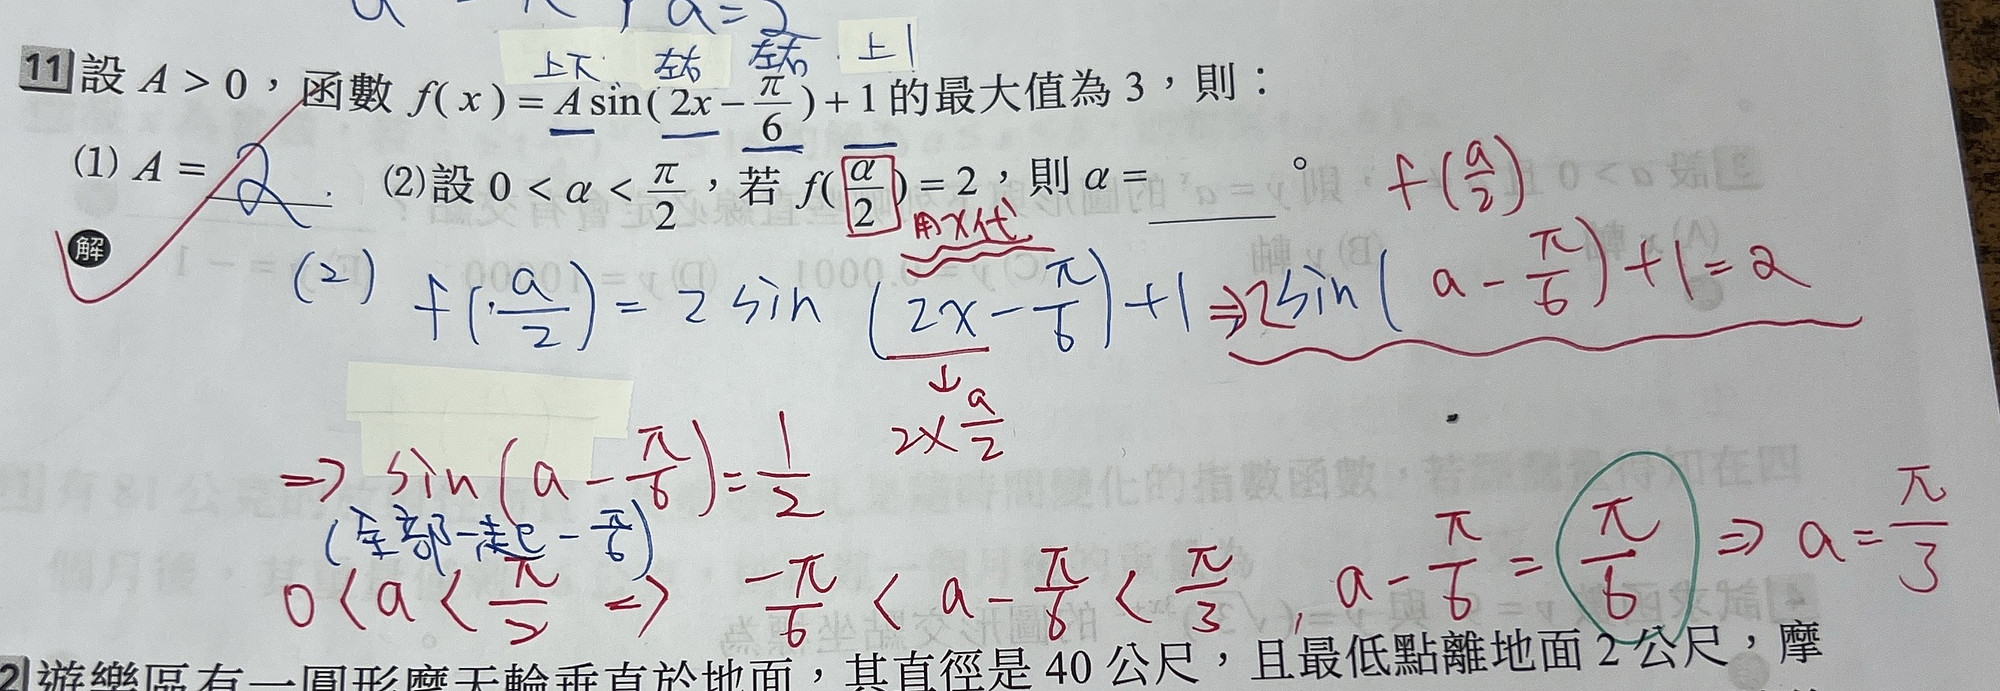 a = 2
上下 左右 左右 上1
11 設 A > 0，函數 f(x) = A sin(2x − π/6) + 1 的最大值為 3，則：
(1) A = 2. (2) 設 0 < α < π/2，若 f(α/2) = 2，則 α = ______。 f(a/2)
用x代
解
(2) f(a/2) = 2 sin(2x − π/6) + 1 ⇒ 2sin(a − π/6) + 1 = 2
↓
2×a/2
⇒ sin(a − π/6) = 1/2
(全部一起 − π/6)
0 < a < π/2 ⇒ −π/6 < a − π/6 < π/3, a − π/6 = π/6 ⇒ a = π/3
2 遊樂區有一圓形摩天輪垂直於地面，其直徑是 40 公尺，且最低點離地面 2 公尺，摩